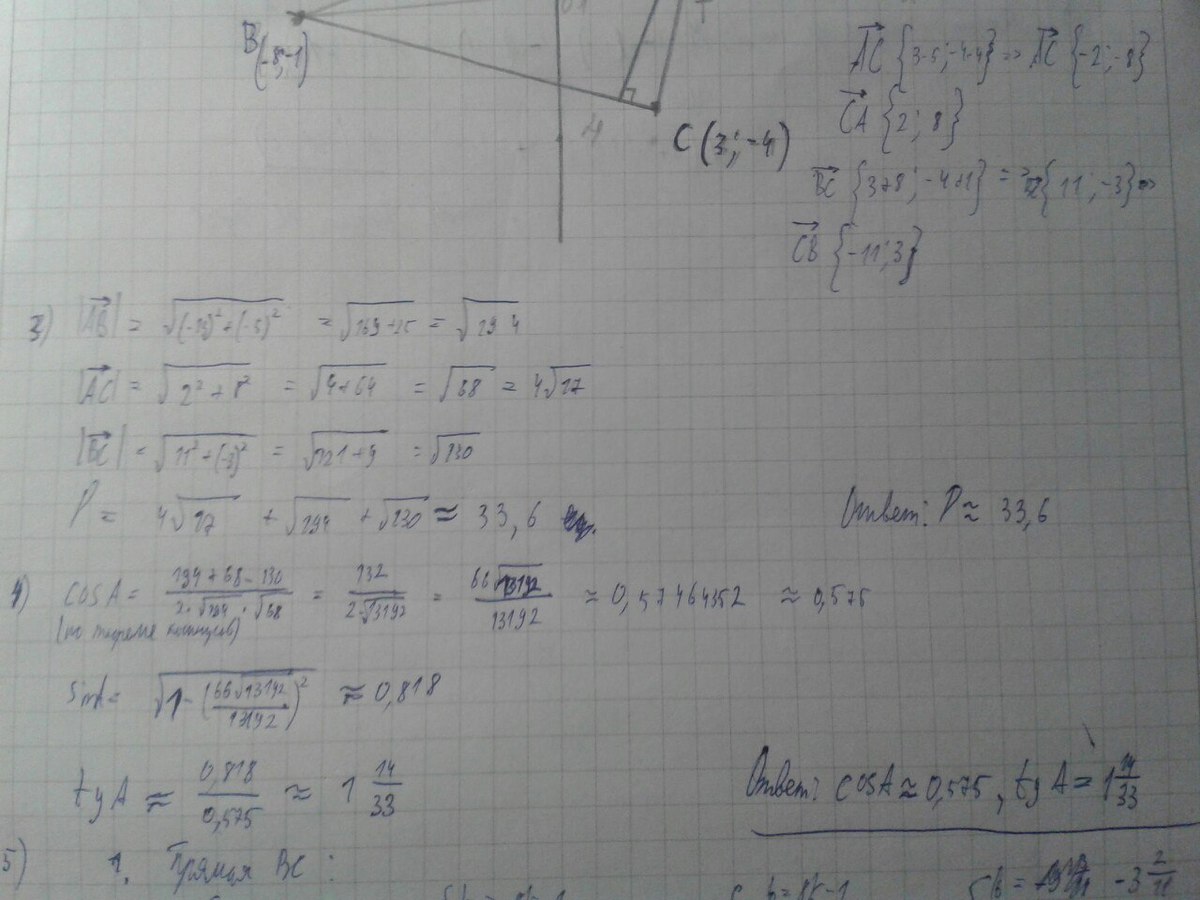 B
(-8;-1)
4
C (3; -4)
AC {3-5; -4-4} => AC {-2; -8}
CA {2; 8}
BC {3+8; -4+1} => BC {11; -3} =>
CB {-11; 3}
3) |AB| = √((-13)² + (-5)²) = √(169+25) = √194
|AC| = √(2² + 8²) = √(4+64) = √68 = 4√17
|BC| = √(11² + (-3)²) = √(121+9) = √130
P = 4√17 + √194 + √130 ≈ 33,6
Ответ: P ≈ 33,6
4) cosA = (194+68-130)/(2·√194·√68) = 132/(2√13192) = 66√13192/13192 ≈ 0,57464352 ≈ 0,575
(по теореме косинусов)
sinA = √(1-(66√13192/13192)²) ≈ 0,818
tgA ≈ 0,818/0,575 ≈ 1 14/33
Ответ: cosA ≈ 0,575, tgA = 1 14/33
5) 1. Прямая BC:
-3 2/11